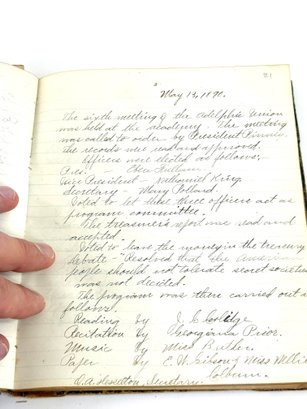 21
May 13, 1890.
The sixth meeting of the Adelphic Union
was held at the academy. The meeting
was called to order by President
the records were read and approved.
Officers were elected as follows;-
Pres. -
Vice President - Nathaniel King
Secretary - Mary Pollard.
Voted to let these three officers act as
program committee.
The treasurer's report was read and
accepted.
Voted to leave the money in the treasury
Debate - "Resolved that the American
people should not tolerate secret societies
was not decided.
The program was then carried out as
follows.
Reading by J. C. Coolidge
Recitation by Georgianna Price.
Music by Miss Butler.
Paper by E. H. Gibson & Miss
Secretary.